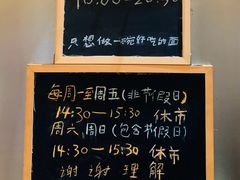 10:00-20:30
只想做一碗好吃的面
每周一至周五(非节假日)
14:30—15:30 休市
周六,周日(包含节假日)
14:30—15:30 休市
谢谢理解